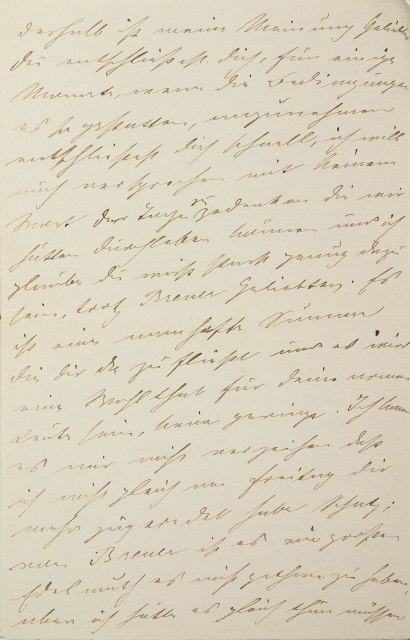 deshalb ist meine Meinung Geliebter
du entschließest dich, für einige
Monate, wenn die Bedingungen
es so gestatten, anzunehmen
entschließest dich schnell, ich will
auch versprechen mit keinem
Wort der Tage zu gedenken die wir
hätten durchleben können und ich
glaube du wirst stark genug dazu
sein, trotz Breuer Geliebter. Es
ist eine namhafte Summe
die dir da zufließt und es wird
eine Wohlthat für deine armen
Leute sein, keine geringe. Ich kann
es mir nicht verzeihen daß
ich nicht gleich am Freitag dir
mehr zugeredet habe Schatz;
von Breuer ist es ein großer
Edelmuth es nicht gethan zu haben,
aber ich hätte es gleich thun müssen